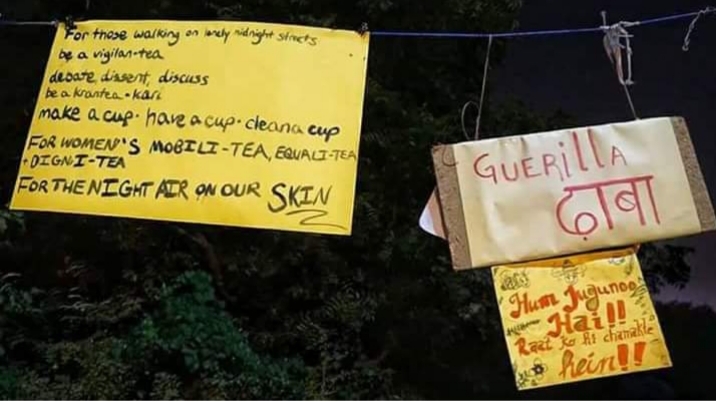 For those walking on lonely midnight streets
be a vigilan-tea
debate, dissent, discuss
be a krantea-kari
make a cup. have a cup. clean a cup
FOR WOMEN'S MOBILI-TEA, EQUALI-TEA
+ DIGNI-TEA
FOR THE NIGHT AIR ON OUR SKIN
GUERILLA
ढ़ाबा
Hum Jugunoo
Hai!!
Raat ko hi chamakte
hein!!